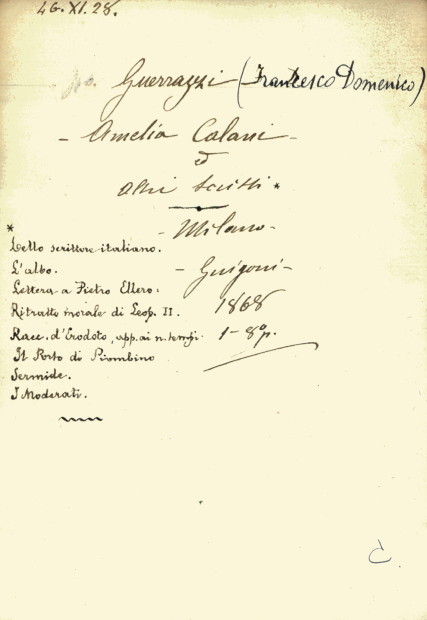 46. XI. 28.
Guerrazzi (Francesco Domenico)
- Amelia Calani -
ed
altri scritti *
- Milano -
- Guigoni -
1868
1 - 8º p.
*
Dello scrittore italiano.
L'albo.
Lettera a Pietro Ellero.
Ritratto morale di Leop. II.
Racc. d'Erodoto, app. ai n. tempi
Il Porto di Piombino
Sermide.
I Moderati.
C.